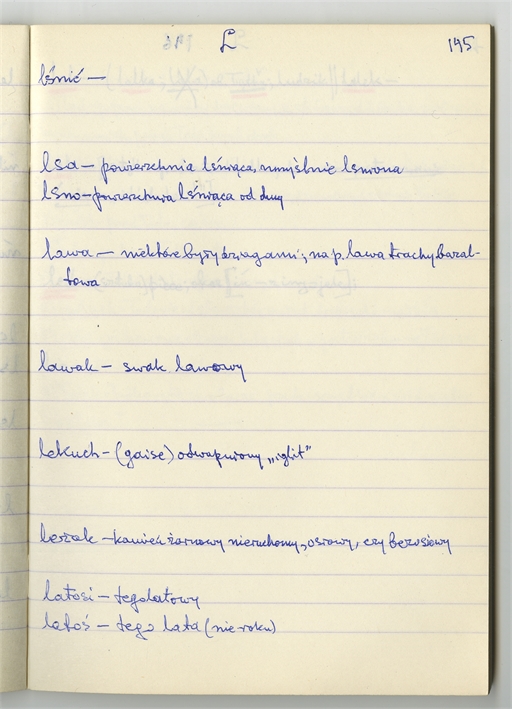 L 195
lśnić —
lsa — powierzchnia lśniąca, umyślnie lśniona
lsno — powierzchnia lśniąca od dny
lawa — niektóre były dziagami; np. lawa trachybazal-
towa
lawak — swak lawowy
lekuch — (gaise) odwapniony „iglit"
leżak — kamień żarnowy nieruchomy, osiowy, czy bezosiowy
latosi — tegolatowy
latoś — tego lata (nie roku)